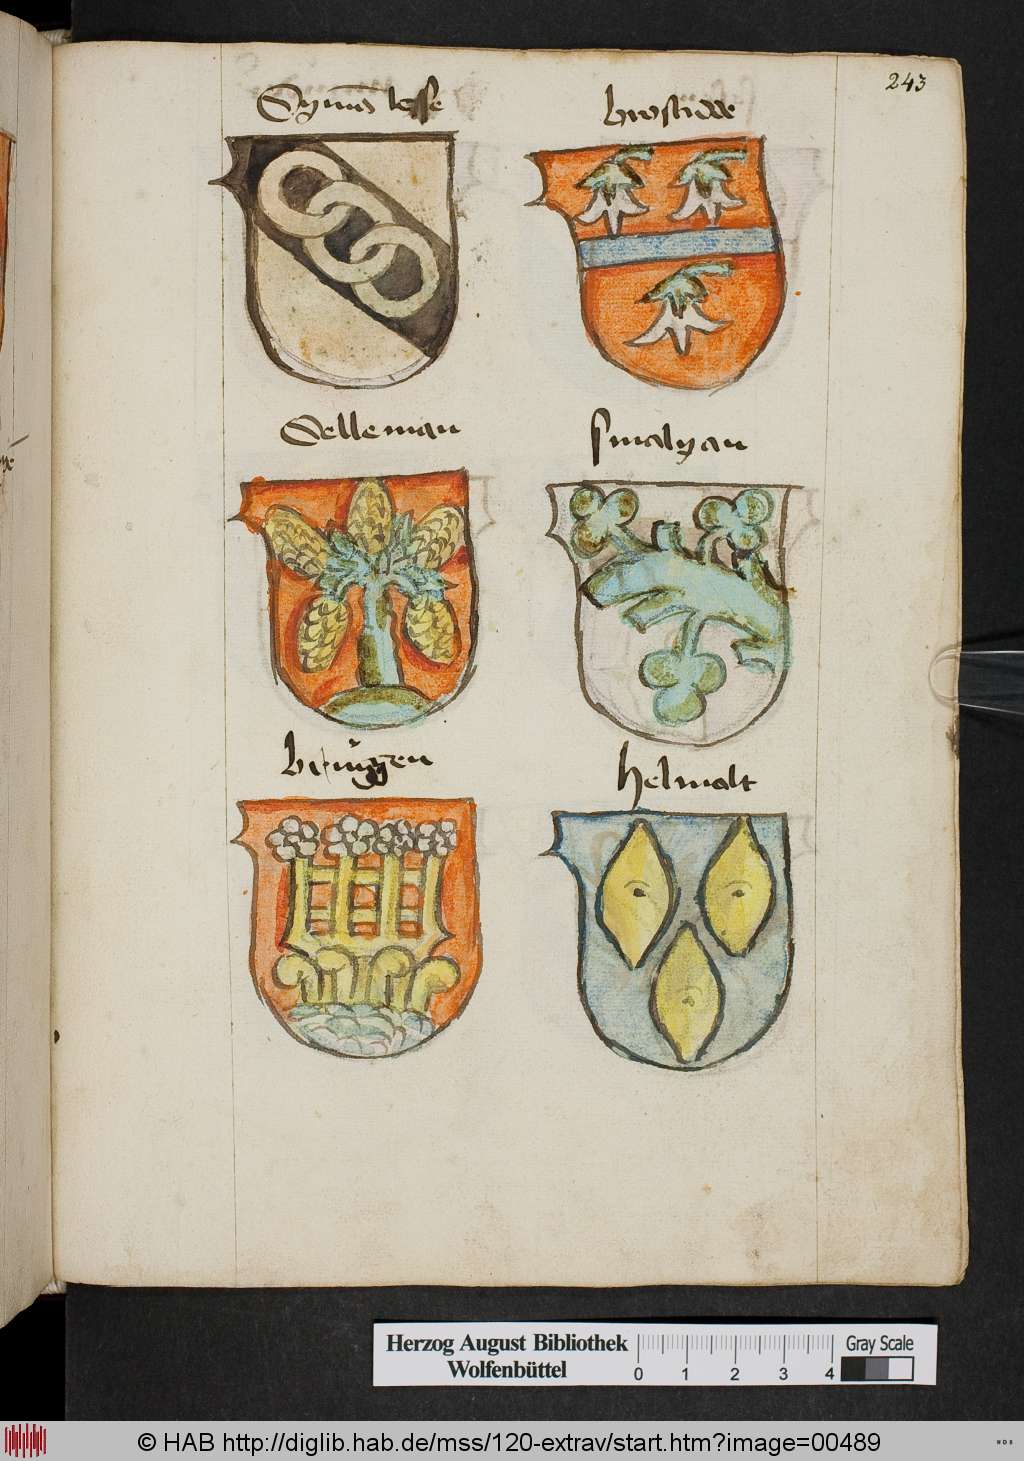 243
Selleman
smalyan
helmalt
Herzog August Bibliothek
Wolfenbüttel
Gray Scale
0 1 2 3 4
© HAB http://diglib.hab.de/mss/120-extrav/start.htm?image=00489